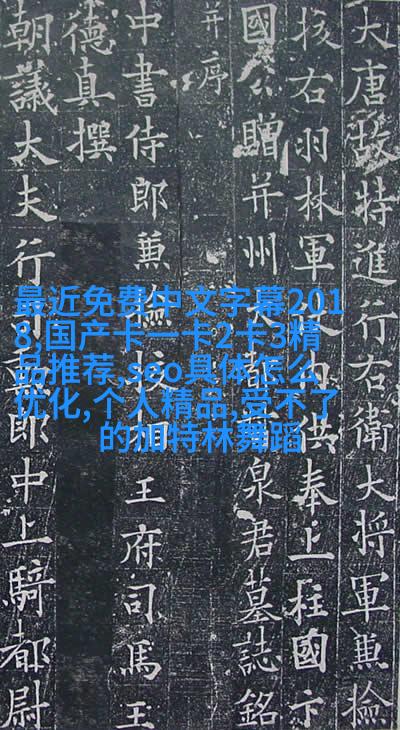 大唐故特進行右衛大將軍兼撿
挍右羽林軍內供奉上柱國卞
國公贈并州大都泉君墓誌銘
并序
中書侍郎兼撿挍相王府司馬王
德真撰
朝議大夫行司勳郎中上騎都尉
最近免费中文字幕201
8,国产卡一卡2卡3精
品推荐,seo具体怎么
优化,个人精品,受不了
的加特林舞蹈